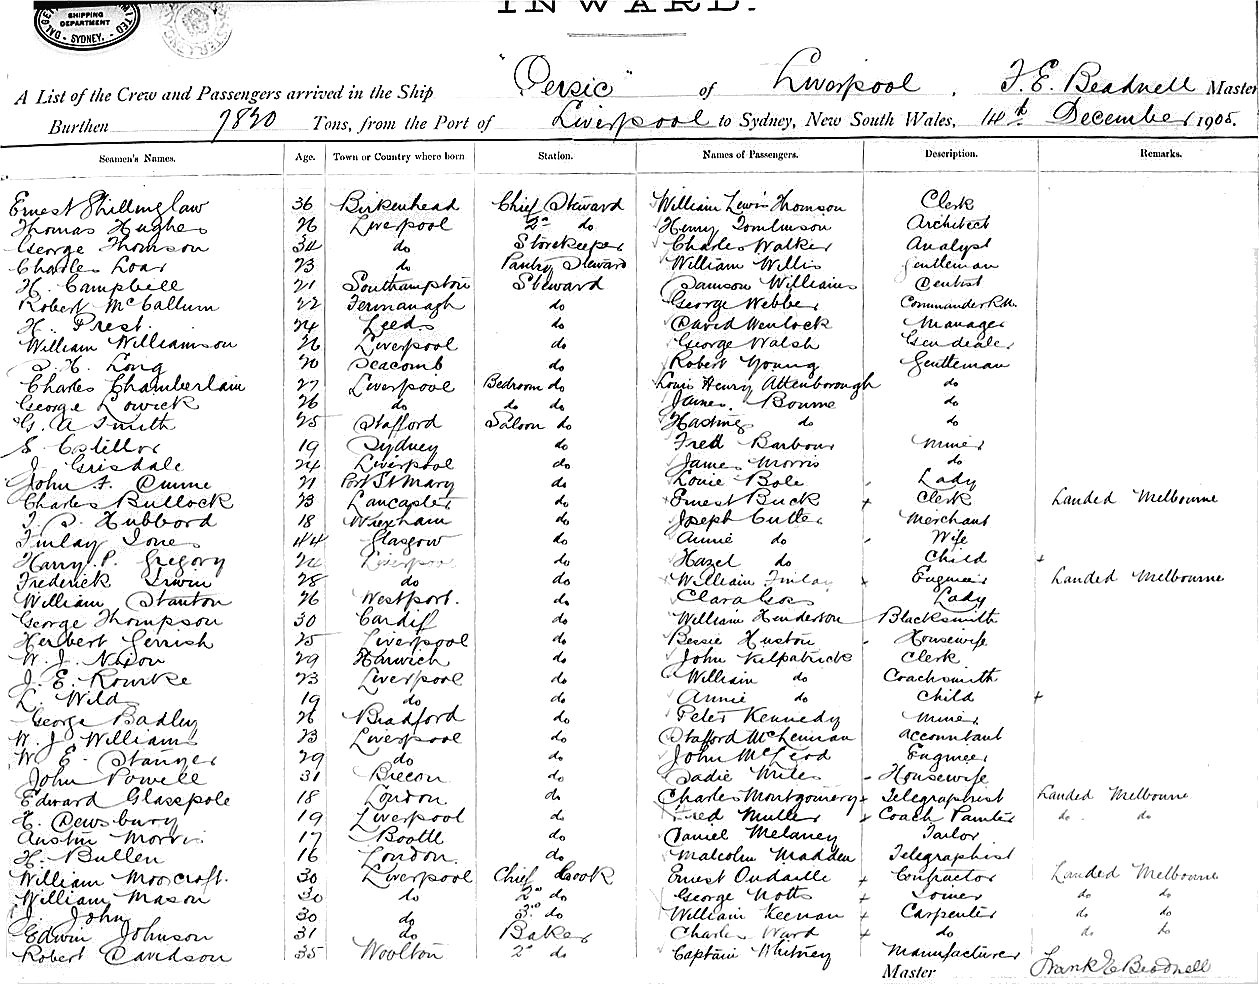 INWARD.
SHIPPING DEPARTMENT
SYDNEY.
"Persic" of Liverpool, F. E. Beadnell Master
A List of the Crew and Passengers arrived in the Ship
Burthen 7820 Tons, from the Port of Liverpool to Sydney, New South Wales, 14th December 1905.
Seamen's Names. Age. Town or Country where born Station. Names of Passengers. Description. Remarks.
Ernest Shillinglaw 36 Birkenhead Chief Steward William Lewis Thomson Clerk
Thomas Hughes 26 Liverpool 2nd do Henry Tomlinson Architect
George Thomson 34 do Storekeeper Charles Walker Analyst
Charles Loar 23 do Pantry Steward William Willis Gentleman
H. Campbell 21 Southampton Steward Samson Williams Dentist
Robert McCallum 22 Fermanagh do George Webber Commander R.N.
H. Prest. 24 Leeds do David Wenlock Manager
William Williamson 26 Liverpool do George Walsh Gen dealer
S. H. Long 20 Seacomb do Robert Young Gentleman
Charles Chamberlain 27 Liverpool Bedroom do Louis Henry Attenborough do
George Lowick 26 do do do James Bourne do
G. A Smith 25 Stafford Saloon do Hastings do do
S. Costillor 19 Sydney do Fred Barbour Miner
J. Grisdale 24 Liverpool do James Morris do
John F. Dunne 21 Port St Mary do Louie Bole Lady
Charles Bullock 23 Lancaster do Ernest Buck + Clerk Landed Melbourne
T. S. Hubbord 18 Wrexham do Joseph Cutler Merchant
Finlay Jones 44 Glasgow do Annie do Wife
Harry P. Gregory 24 Liverpool do Hazel do Child +
Frederick Irwin 28 do do William Finlay + Engineer Landed Melbourne
William Stanton 26 Westport. do Clara Goss Lady
George Thompson 30 Cardiff do William Henderson Blacksmith
Herbert Gerrish 25 Liverpool do Bessie Huston Housewife
W. J. Nixon 29 Harwich do John Kilpatrick Clerk
J. E. Rourke 23 Liverpool do William do Coachsmith
L. Wild 19 do do Annie do Child +
George Badley 26 Bradford do Peter Kennedy Miner
W. J. Williams 23 Liverpool do Stafford McLennan Accountant
W. E. Stanger 29 do do John McLeod Engineer
John Powell 31 Brecon do Sadie Miles Housewife
Edward Glasspole 18 London do Charles Montgomery + Telegraphist Landed Melbourne
E. Dewsbury 19 Liverpool do Fred Muller + Coach Painter do do
Austin Morris 17 Bootle do Daniel Melaney Tailor
H. Bullen 16 London do Malcolm Madden Telegraphist
William Moorcroft. 30 Liverpool Chief Cook Ernest Oudaille + Contractor Landed Melbourne
William Mason 30 do 2nd do George Notts + Joiner do do
J. John 30 do 3rd do William Keenan + Carpenter do do
Edwin Johnson 31 do Baker Charles Ward + do do do
Robert Davidson 35 Woolton 2nd do Captain Whitney Manufacturer
Master Frank E Beadnell